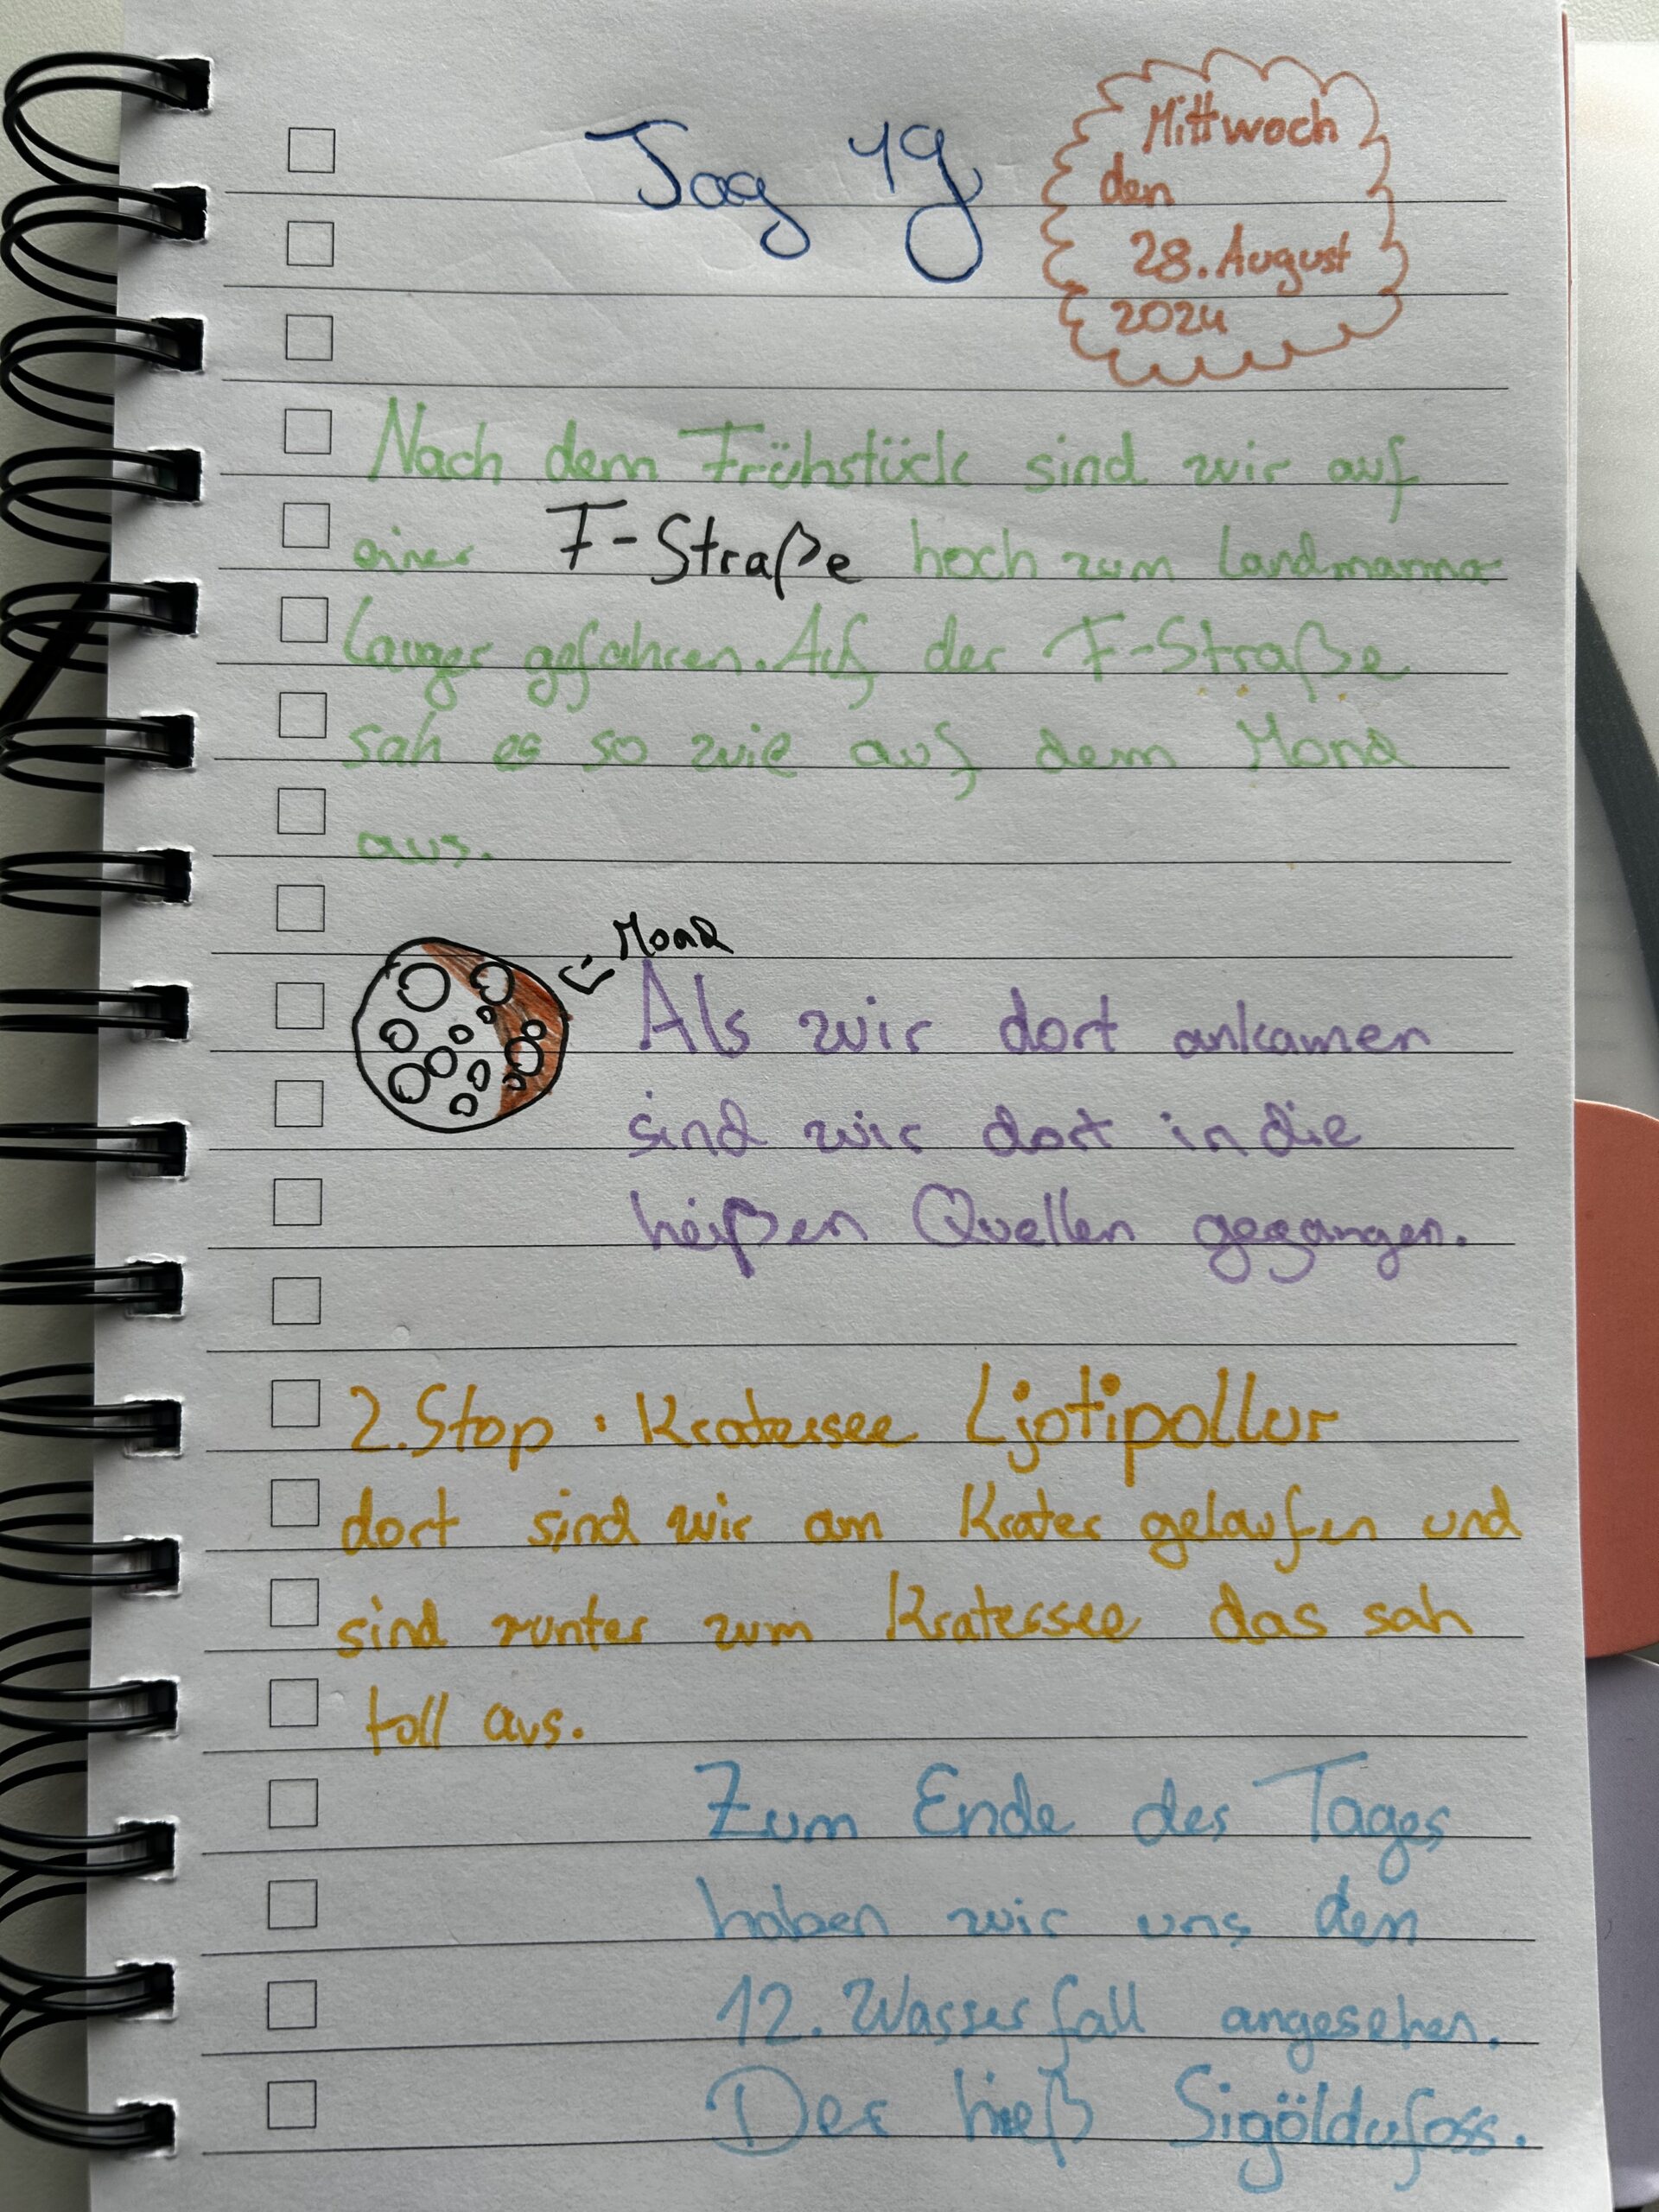 Tag 19
Mittwoch
den
28. August
2024
Nach dem Frühstück sind wir auf
einer F-Straße hoch zum Landmanna-
lauger gefahren. Auf der F-Straße
sah es so wie auf dem Mond
aus.
Mond
Als wir dort ankamen
sind wir dort in die
heißen Quellen gegangen.
2. Stop: Kratersee Ljotipollur
dort sind wir am Krater gelaufen und
sind runter zum Kratersee das sah
toll aus.
Zum Ende des Tages
haben wir uns den
12. Wasserfall angesehen.
Der hieß Sigöldufoss.